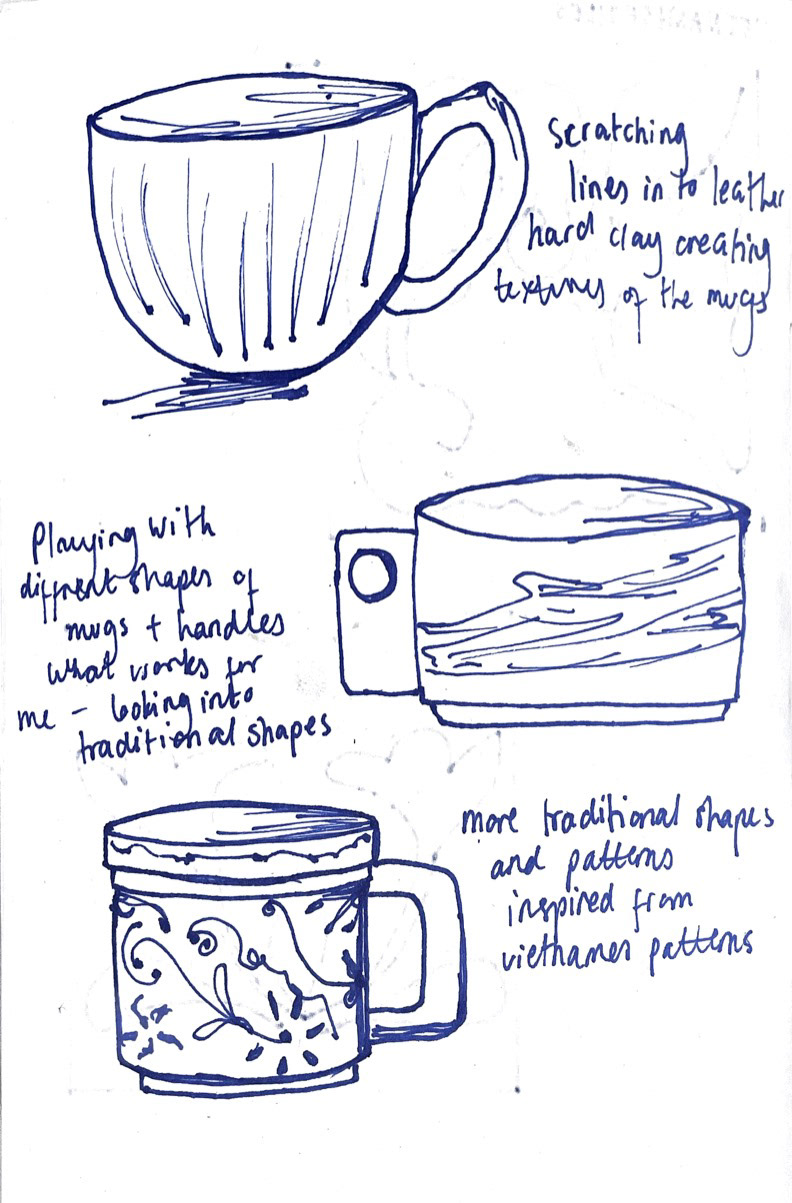 scratching
lines in to leather
hard clay creating
textures of the mugs
Playing with
diffrent shapes of
mugs + handles
what works for
me - looking into
traditional shapes
more traditional shapes
and patterns
inspired from
vietnames patterns